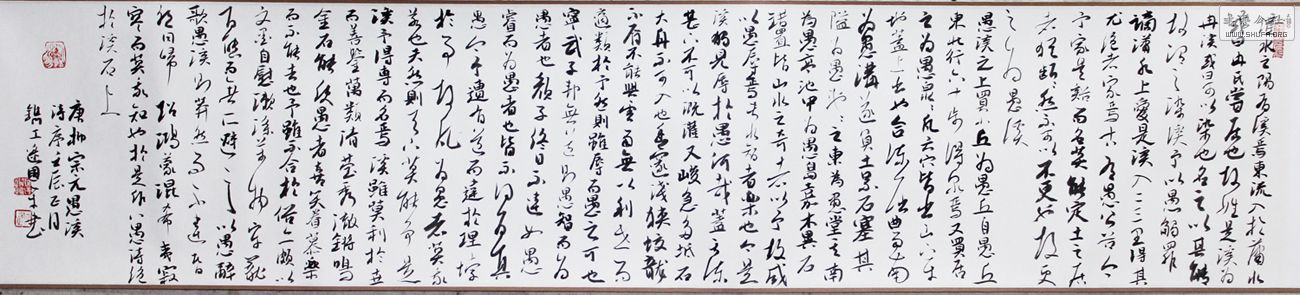 灌水之陽有溪焉東流入於瀟水
或曰冉氏嘗居也故姓是溪為
冉溪或曰可以染也名之以其能
故謂之染溪予以愚觸罪
謫瀟水上愛是溪入二三里得其
尤絕者家焉古有愚公谷今
予家是谿而名莫能定土之居
者猶齗齗然不可以不更也故更
之為愚溪
愚溪之上買小丘為愚丘自愚丘
東北行六十步得泉焉又買居
之為愚泉凡六穴皆出山下平
地蓋上出也合流屈曲而南
為愚溝遂負土累石塞其
隘為愚池之東為愚堂之南
為愚亭池中為愚島嘉木異石
錯置皆山水之奇者以予故咸
以愚辱焉夫水智者樂也今是
溪獨見辱於愚何哉蓋其流
甚下不可以溉灌又峻急多坻石
大舟不可入也幽邃淺狹蛟龍
不屑不能興雲雨無以利世而
適類於予然則雖辱而愚之可也
甯武子邦無道則愚智而為
愚者也顏子終日不違如愚
睿而為愚者也皆不得為真
愚今予遭有道而違於理悖
於事故凡為愚者莫我
若也夫然則天下莫能爭是
溪予得專而名焉溪雖莫利於世
而善鑒萬類清瑩秀澈鏘鳴
金石能使愚者喜笑眷慕樂
而不能去也予雖不合於俗亦頗以
文墨自慰漱滌萬物牢籠
百態而無所避之以愚辭
歌愚溪則茫然而不違昏
然同歸超鴻蒙混希夷寂
寥而莫我知也於是作八愚詩紀
於溪石上
庚柳宗元愚溪
詩序壬辰五月
WWW.SHUFA.ORG